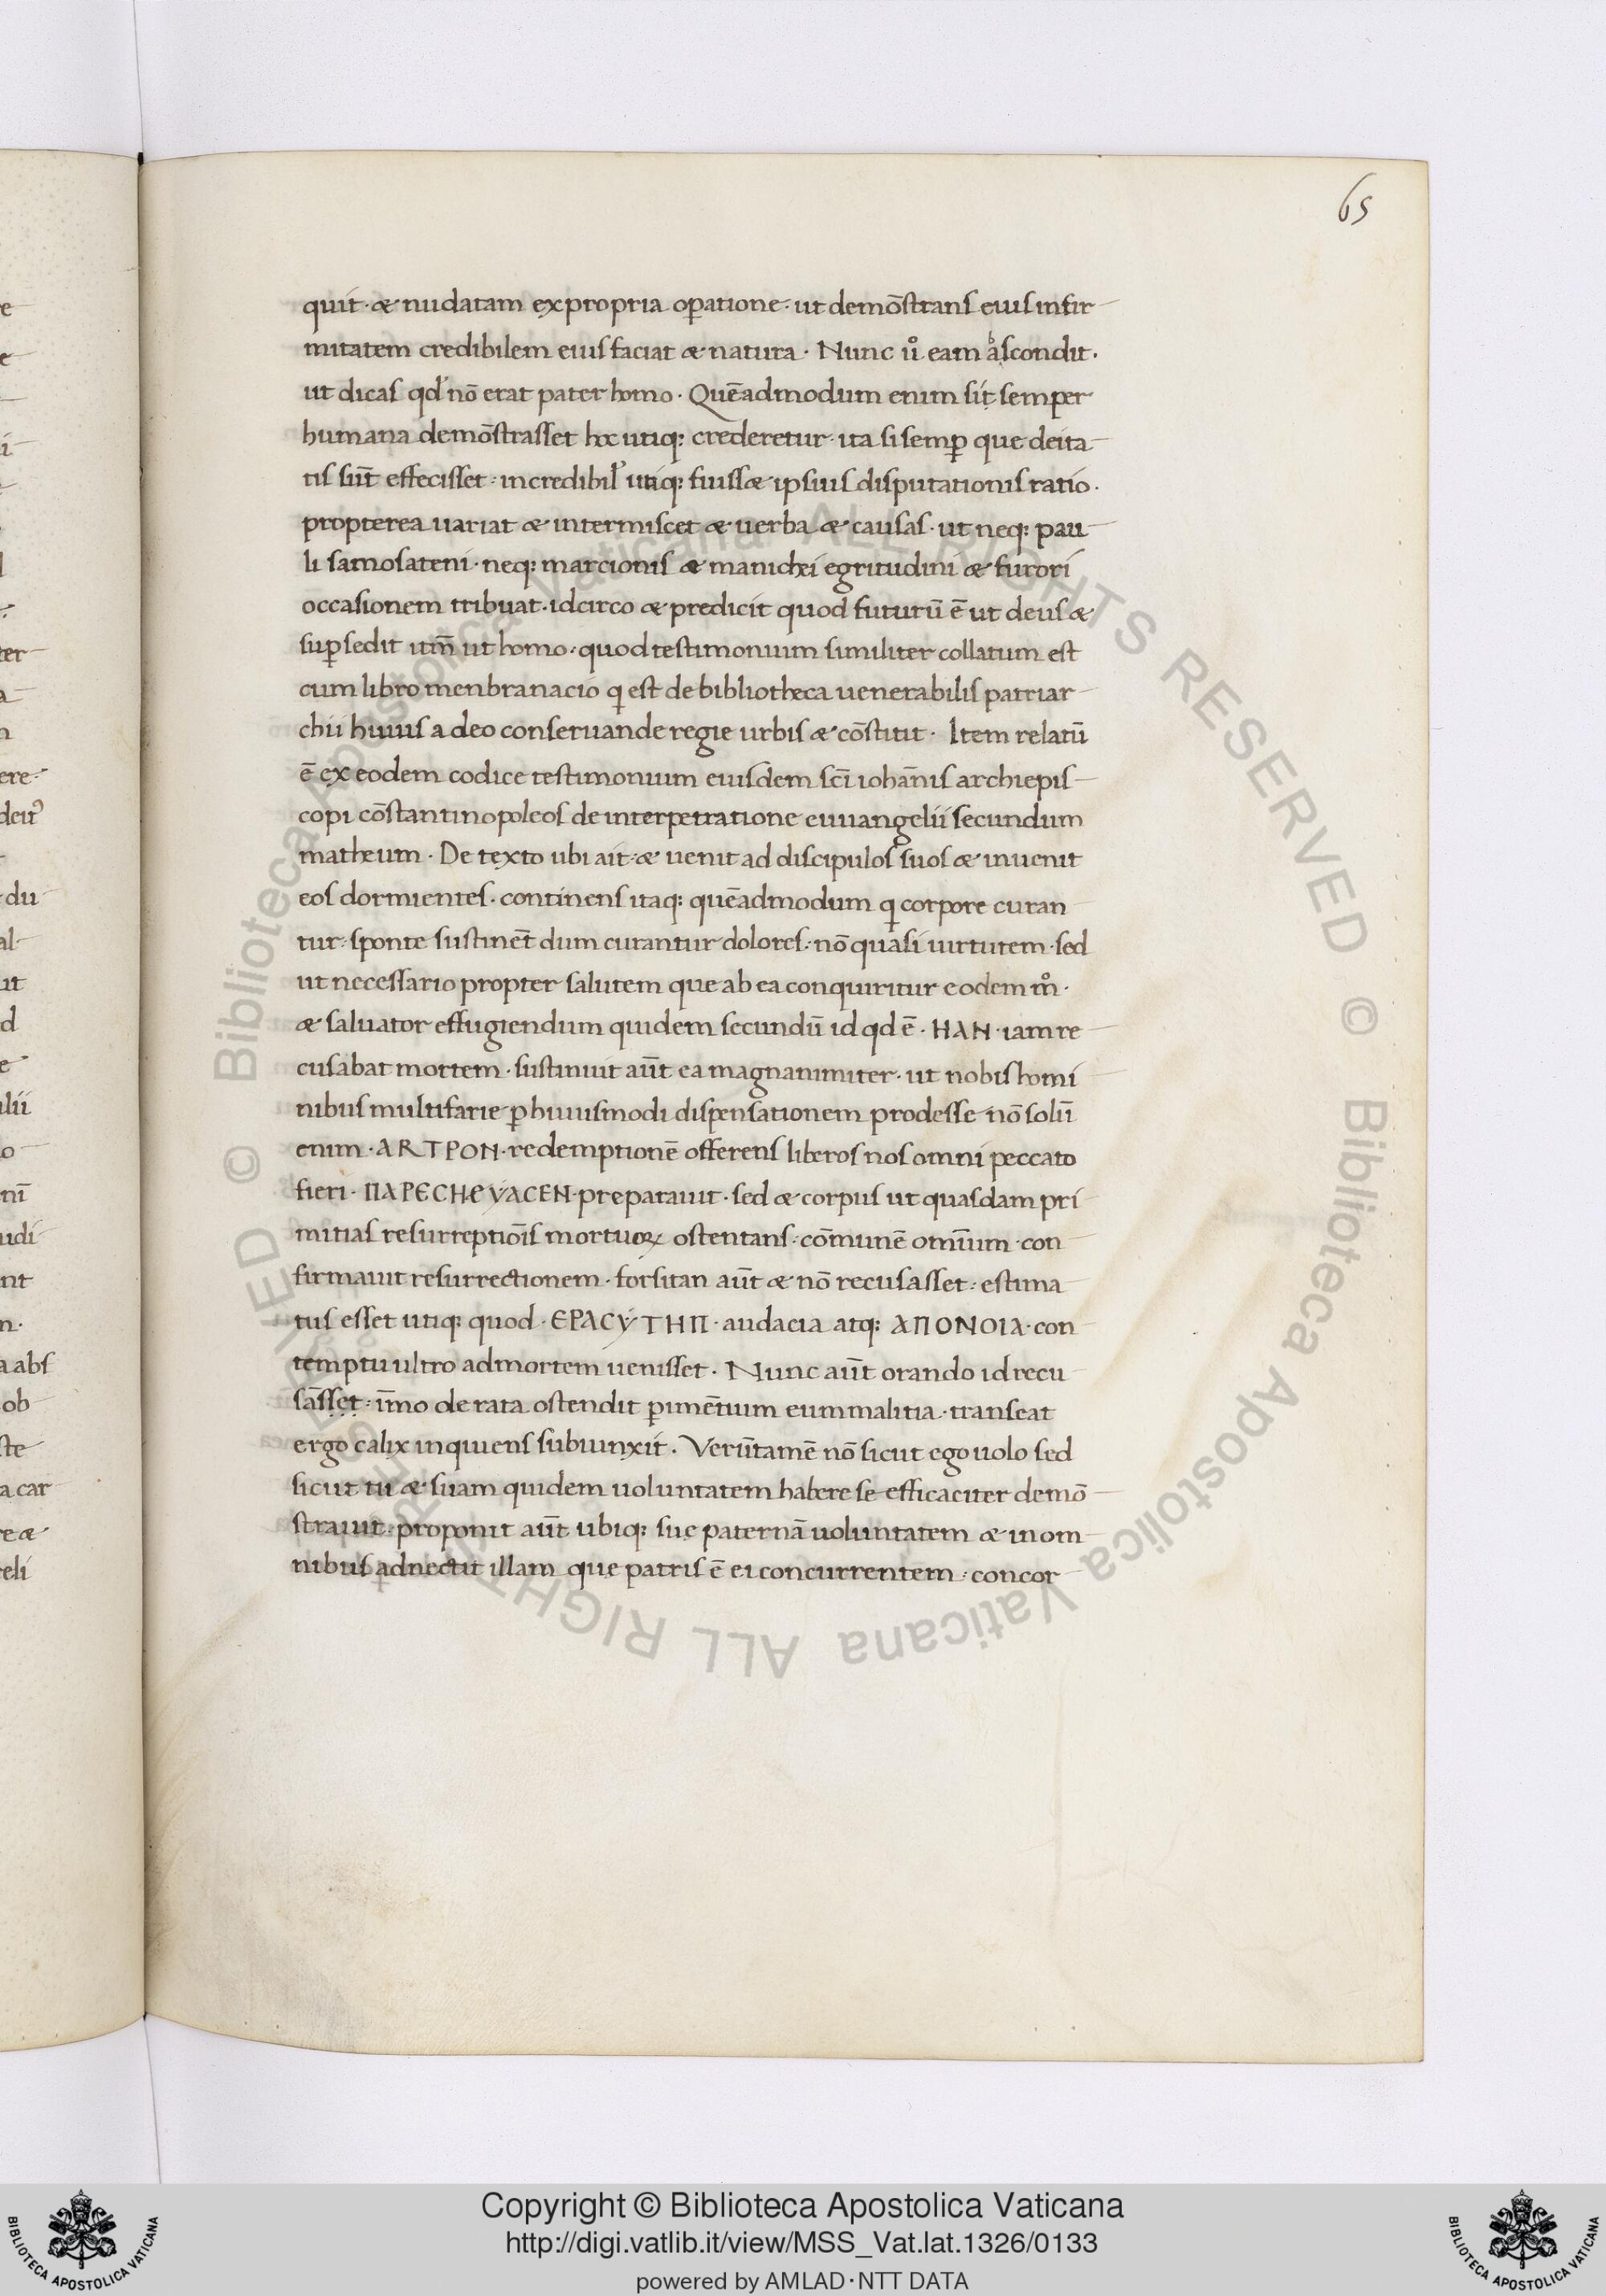 65
quit · & nudatam ex propria oꝑatione · ut demōstrans eius infir
mitatem credibilem eius faciat & natura · Nunc ůo eam abscondit ·
ut dicas qd' nō erat pater homo · Quēadmodum enim sit semper
humana demōstrasset hoc utiq; crederetur · ita si semꝑ que deita
tis sūt effecisset · incredibil' utiq; fuiss& ipsius disputationis ratio ·
propterea uariat & intermiscet & uerba & causas · ut neq; pau
li samosateni · neq; marcionis & manichei egritudini & furori
occasionem tribuat · idcirco & predicit quod futurū ē ut deus &
suꝑsedit itm̄ ut homo · quod testimonium similiter collatum est
cum libro menbranacio q est de bibliotheca uenerabilis patriar
chii huius a deo conseruande regie urbis & cōstitit · Item relatū
ē ex eodem codice testimonium eiusdem sc̄i iohān̄is archiepis
copi cōstantinopoleos de interpetratione euuangelii secundum
matheum · De texto ubi ait · & uenit ad discipulos suos & inuenit
eos dormientes · continens itaq; quēadmodum q corpore curan
tur · sponte sustinēt dum curantur dolores · nō quasi uirtutem · sed
ut necessario propter salutem que ab ea conquiritur eodem m̊ ·
& saluator effugiendum quidem secundū id qd ē · HAN · iam re
cusabat mortem · sustinuit aūt ea magnanimiter · ut nobis homi
nibus multifarie ꝑ huiusmodi dispensationem prodesse nō solū
enim · ARTPON · redemptionē offerens liberos nos omni peccato
fieri · ΠAPЄCHЄYACEN · preparauit · sed & corpus ut quasdam pri
mitias resurreptiōis mortuoꝝ ostentans · cōmunē omīum · con
firmauit resurrectionem · forsitan aūt & nō recusasset · estima
tus esset utiq; quod · ЄPACYTHΠ · audacia atq; AΠONOIA · con
temptu ultro ad mortem uenisset · Nunc aūt orando id recu
sāsset · īmo de rata ostendit ꝑimētium eum malitia · transeat
ergo calix inquiens subiunxit . Verūtamē nō sicut ego uolo sed
sicut tu & suam quidem uoluntatem habere se efficaciter demō
strauit · proponit aūt ubiq; suę paternā uoluntatem & in om
nibus adnectit illam que patris ē ei concurrentem · concor
Copyright © Biblioteca Apostolica Vaticana
http://digi.vatlib.it/view/MSS_Vat.lat.1326/0133
powered by AMLAD·NTT DATA
BIBLIOTECA APOSTOLICA VATICANA
BIBLIOTECA APOSTOLICA VATICANA
© Biblioteca Apostolica Vaticana ALL RIGHTS RESERVED © Biblioteca Apostolica Vaticana ALL RIGHTS RESERVED